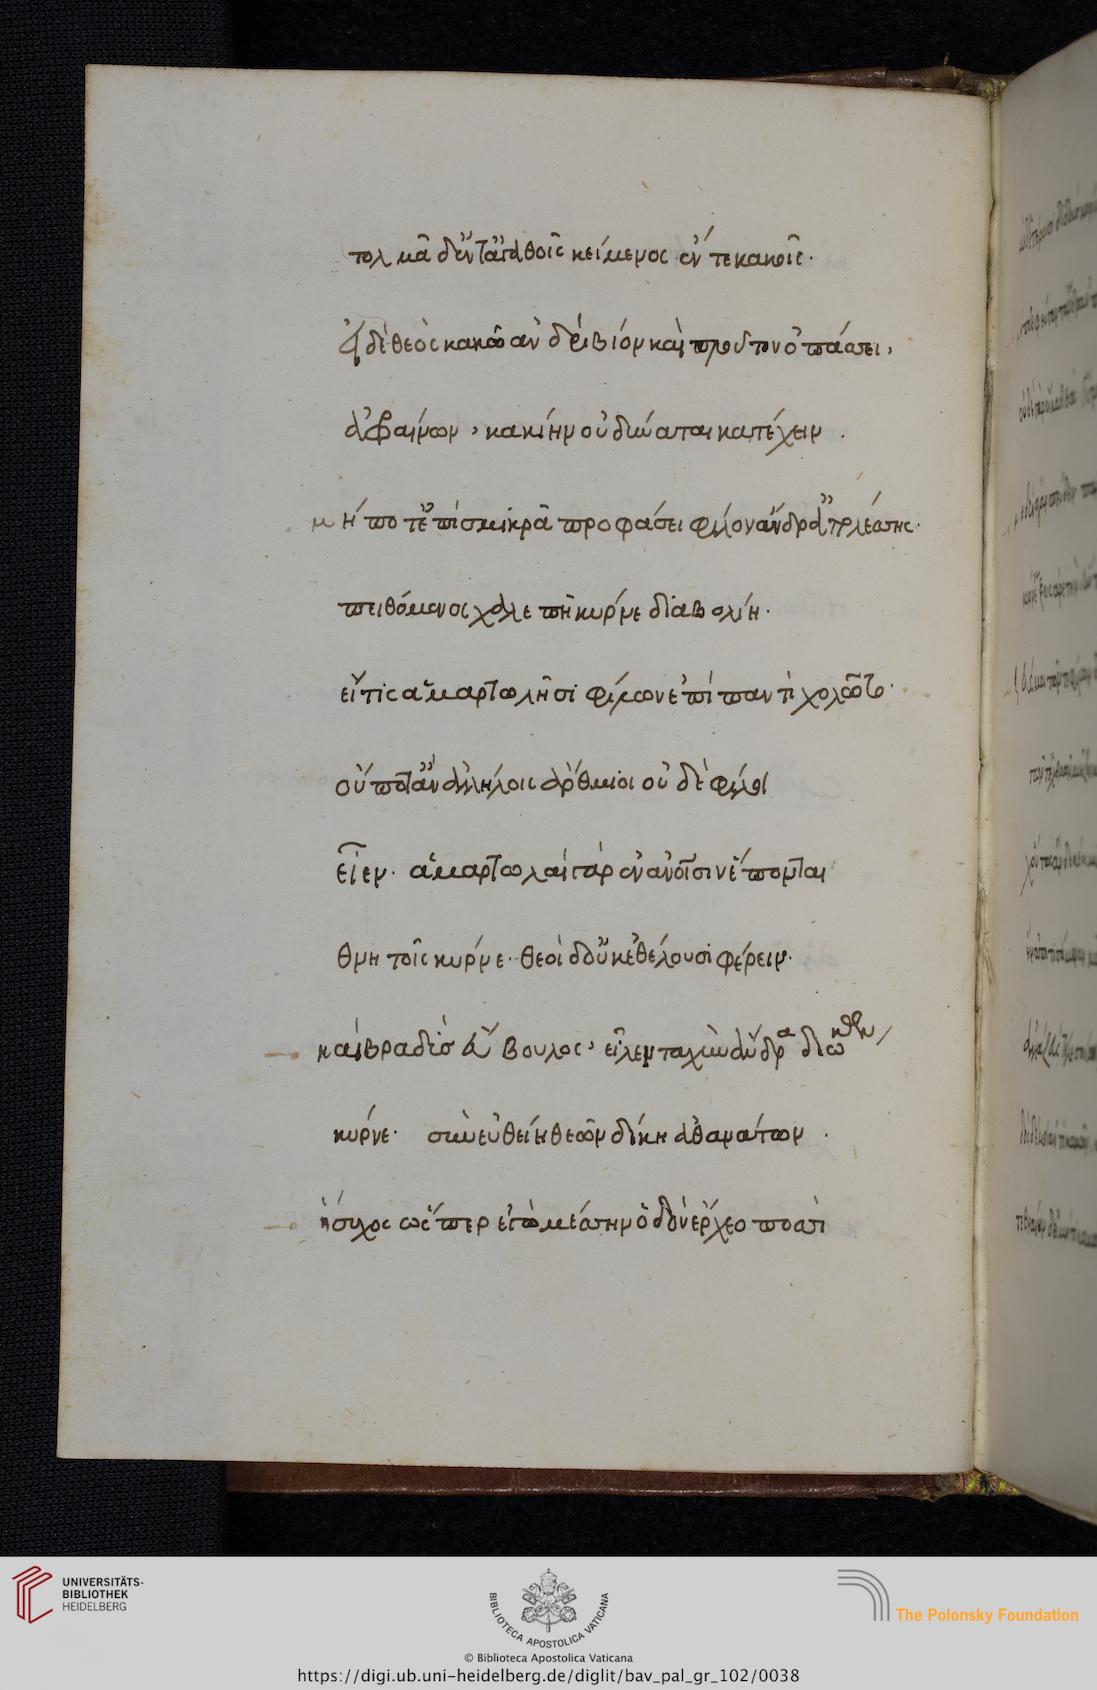 τολμᾶ δ' ἔν τ' ἀγαθοῖς κείμενος ἔν τε κακοῖς.
εἰ δὲ θεὸς κακῷ ἀνδρὶ βίον καὶ πλοῦτον ὀπάσσει,
ἀφραίνων, κακίην οὐ δύναται κατέχειν.
μήποτ' ἐπὶ σμικρᾶ προφάσει φίλον ἄνδρ' ἀπολέσσης.
πειθόμενος χαλεπῆ κύρνε διαβολίη.
εἴ τις ἁμαρτωλῆσι φίλων ἐπὶ παντὶ χολῶτο.
οὔποτ' ἂν ἀλλήλοις ἄρθμιοι οὐδὲ φίλοι
εἶεν. ἁμαρτωλαὶ γὰρ ἐν ἀνθρώποισιν ἕπονται
θνητοῖς κύρνε. θεοὶ δ' οὐκ ἐθέλουσι φέρειν.
καὶ βραδὺς εὔβουλος, εἷλεν ταχὺν ἄνδρα διώκων
κύρνε. σὺν εὐθείη θεῶν δίκη ἀθανάτων.
ἥσυχος ὥσπερ ἐγὼ μέσσην ὁδὸν ἔρχεο ποσσὶ
UNIVERSITÄTS-
BIBLIOTHEK
HEIDELBERG
BIBLIOTECA APOSTOLICA VATICANA
The Polonsky Foundation
© Biblioteca Apostolica Vaticana
https://digi.ub.uni-heidelberg.de/diglit/bav_pal_gr_102/0038